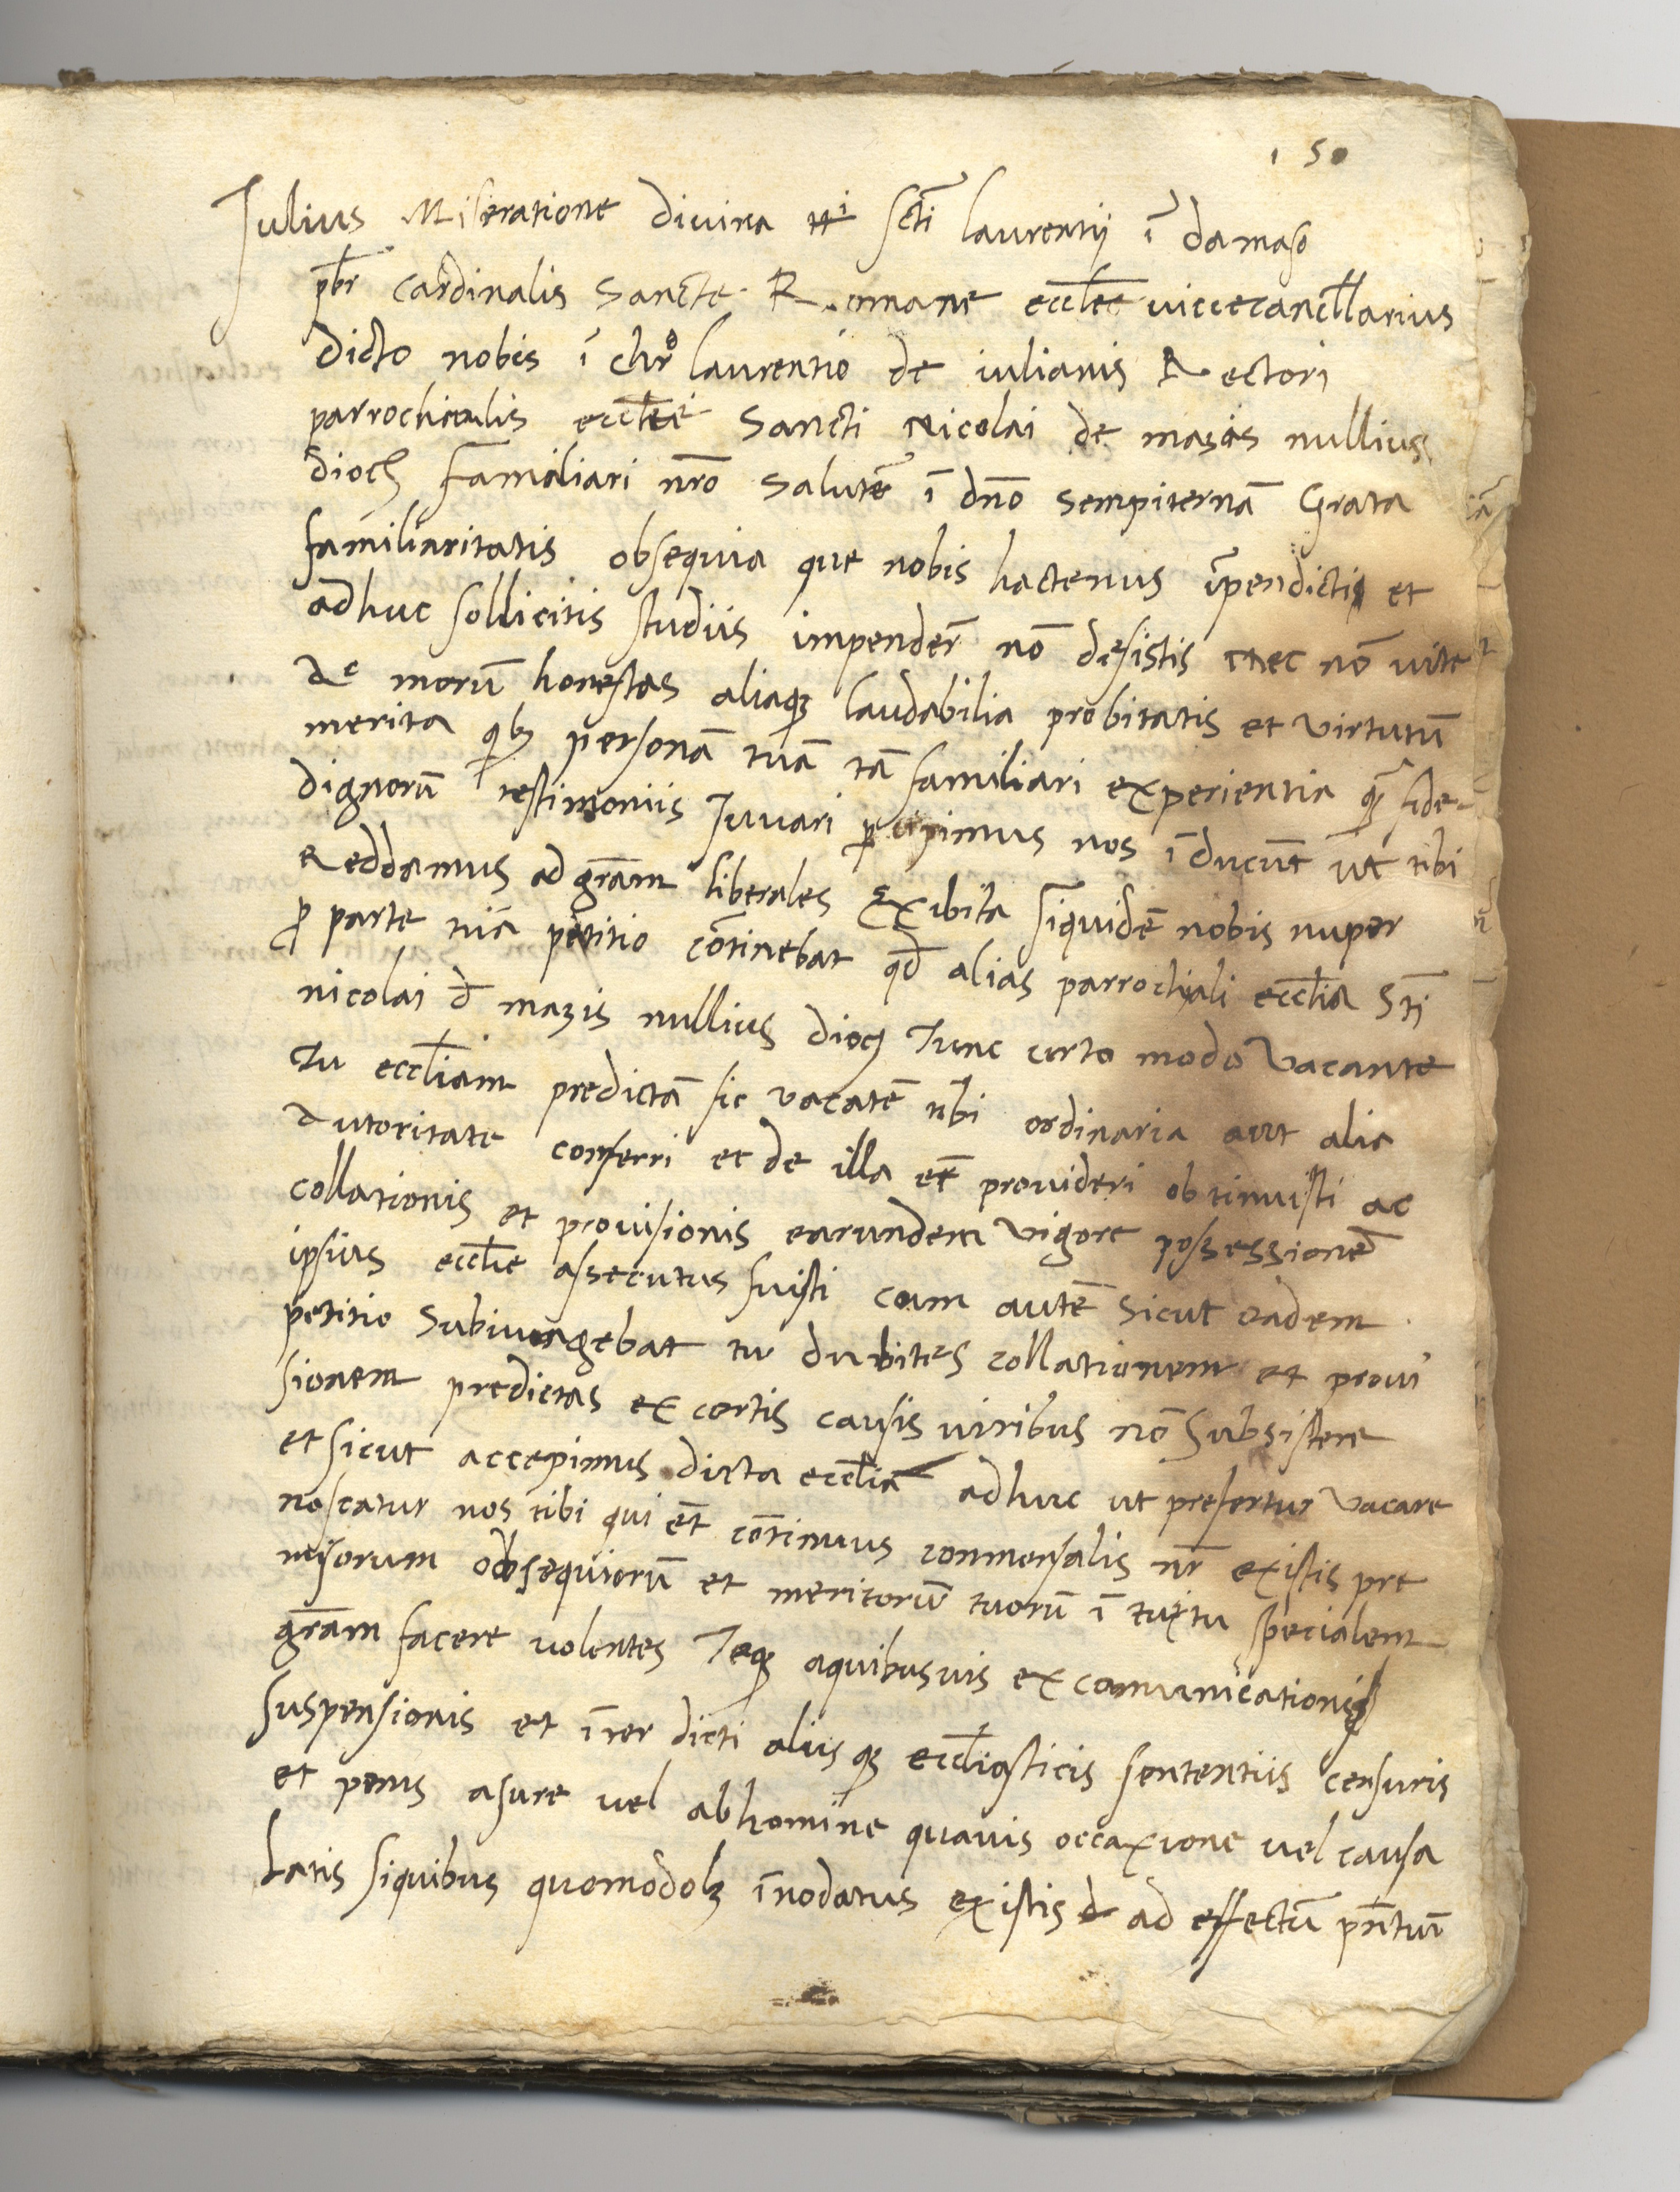 150
Julius Miseratione divina tti scti laurentij ī damaso
pbr cardinalis Sancte Romane ecclee viccecancllarius
dicto nobis ī chro laurentio de iulianis Rectori
parrochialis ecclee Sancti Nicolai de mazis nullius
dioc familiari nro salutē ī dno sempiternā Grata
familiaritatis obsequia que nobis hactenus īpendictis et
adhuc sollicitis studiis impender nō desistis nec nō vite
ac morū honestas aliaq laudabilia probitatis et virtutū
merita qb personā tuā tā familiari experientia q fide-
dignorū testimoniis Juvari percipimus nos īducūt ut tibi
Reddamus ad grām liberales Exibita siquidē nobis nuper
p parte tuā petitio cōtinebat qd alias parrochiali ecclia Sti
nicolai d mazis nullius dioc Tunc certo modo vacante
Tu eccliam predictā sic vacātē tibi ordinaria aut alia
autoritate conferri et de illa et provideri obtinuisti ac
collationis et provisionis earundem vigore possessionē
ipsius ecclie assecutus fuisti cum autē sicut eadem
petitio subiungebat tu dubites collationem et provi
sionem predictas ex certis causis viribus nō subsistere
et sicut accepimus dicta ecclia adhuc ut prefertur vacare
noscatur nos tibi qui ēt cōtinuus conmensalis nr existis pre
misorum obsequiorū et meritorū tuorū ī tuitu specialem
grām facere volentes Teq aquibusvis excomunicationis
suspensionis et īter dicti aliis q eccliasticis sententiis censuris
et penis asure vel abhomine quavis occaxione vel causa
latis siquibus quomodolz īnodatus existis d ad effectū pntuī